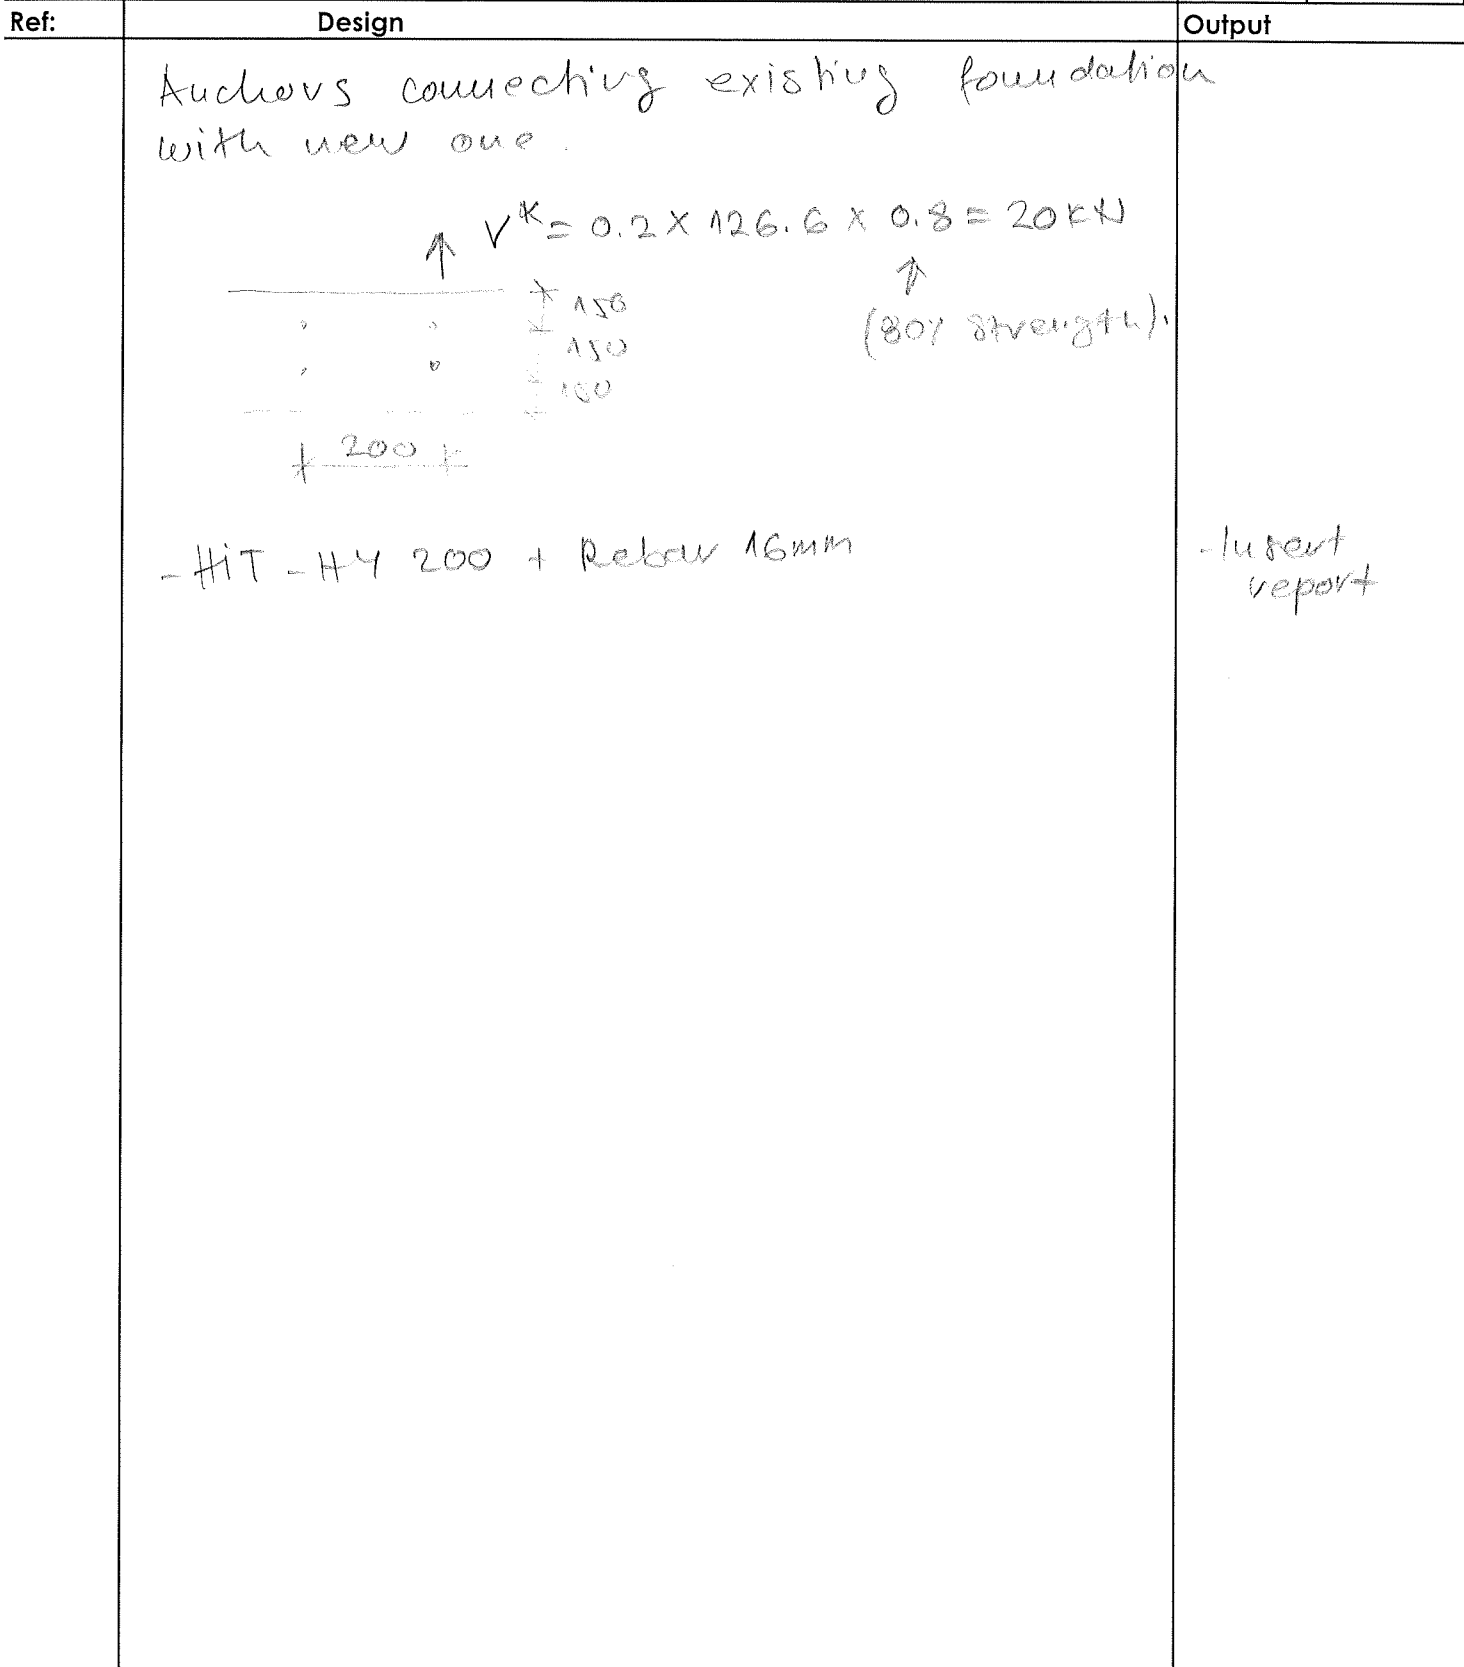 Ref: Design Output
Anchors connecting existing foundation
with new one.
V^K = 0.2 x 126.6 x 0.8 = 20KN
(80% strength).
150
150
150
200
- HiT - HY 200 + Rebar 16mm
- Insert
report